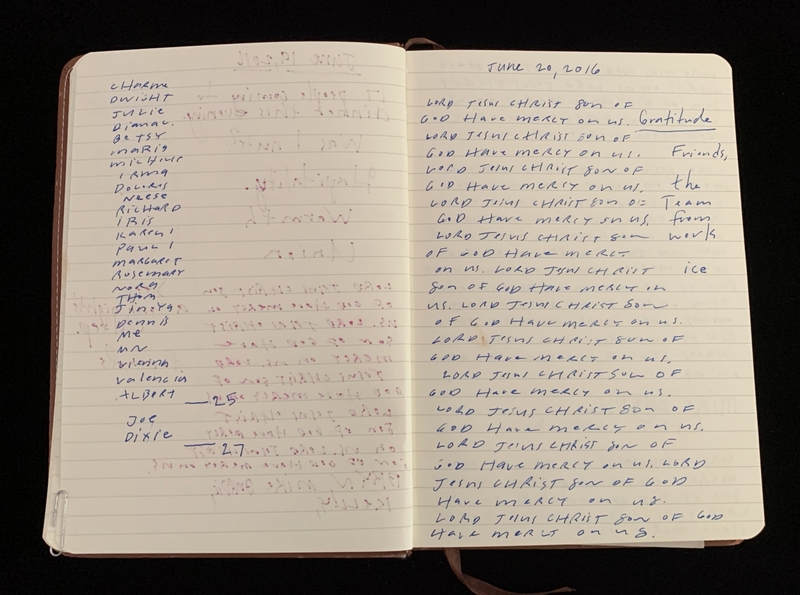 CHARME
DWIGHT
JULIE
DIANAC.
BETSY
MARIS
IRMA
DOLORES
NEESE
RICHARD
IRIS
KAREN I
PAUL I
MARGARET
ROSEMARY
NORA
THOM
DENNIS
ME
VIENNA
VALENCIA
ALBERT — 25
JOE
DIXIE — 27
JUNE 20, 2016
LORD JESUS CHRIST SON OF
GOD HAVE MERCY ON US. Gratitude
LORD JESUS CHRIST SON OF
GOD HAVE MERCY ON US. Friends,
LORD JESUS CHRIST SON OF
GOD HAVE MERCY ON US. the
LORD JESUS CHRIST SON OF Team
GOD HAVE MERCY ON US. from
LORD JESUS CHRIST SON work
OF GOD HAVE MERCY
ON US. LORD JESUS CHRIST ice
SON OF GOD HAVE MERCY ON
US. LORD JESUS CHRIST SON
OF GOD HAVE MERCY ON US.
LORD JESUS CHRIST SON OF
GOD HAVE MERCY ON US.
LORD JESUS CHRIST SON OF
GOD HAVE MERCY ON US.
LORD JESUS CHRIST SON OF
GOD HAVE MERCY ON US.
LORD JESUS CHRIST SON OF
GOD HAVE MERCY ON US. LORD
JESUS CHRIST SON OF GOD
HAVE MERCY ON US.
LORD JESUS CHRIST SON OF GOD
HAVE MERCY ON US.